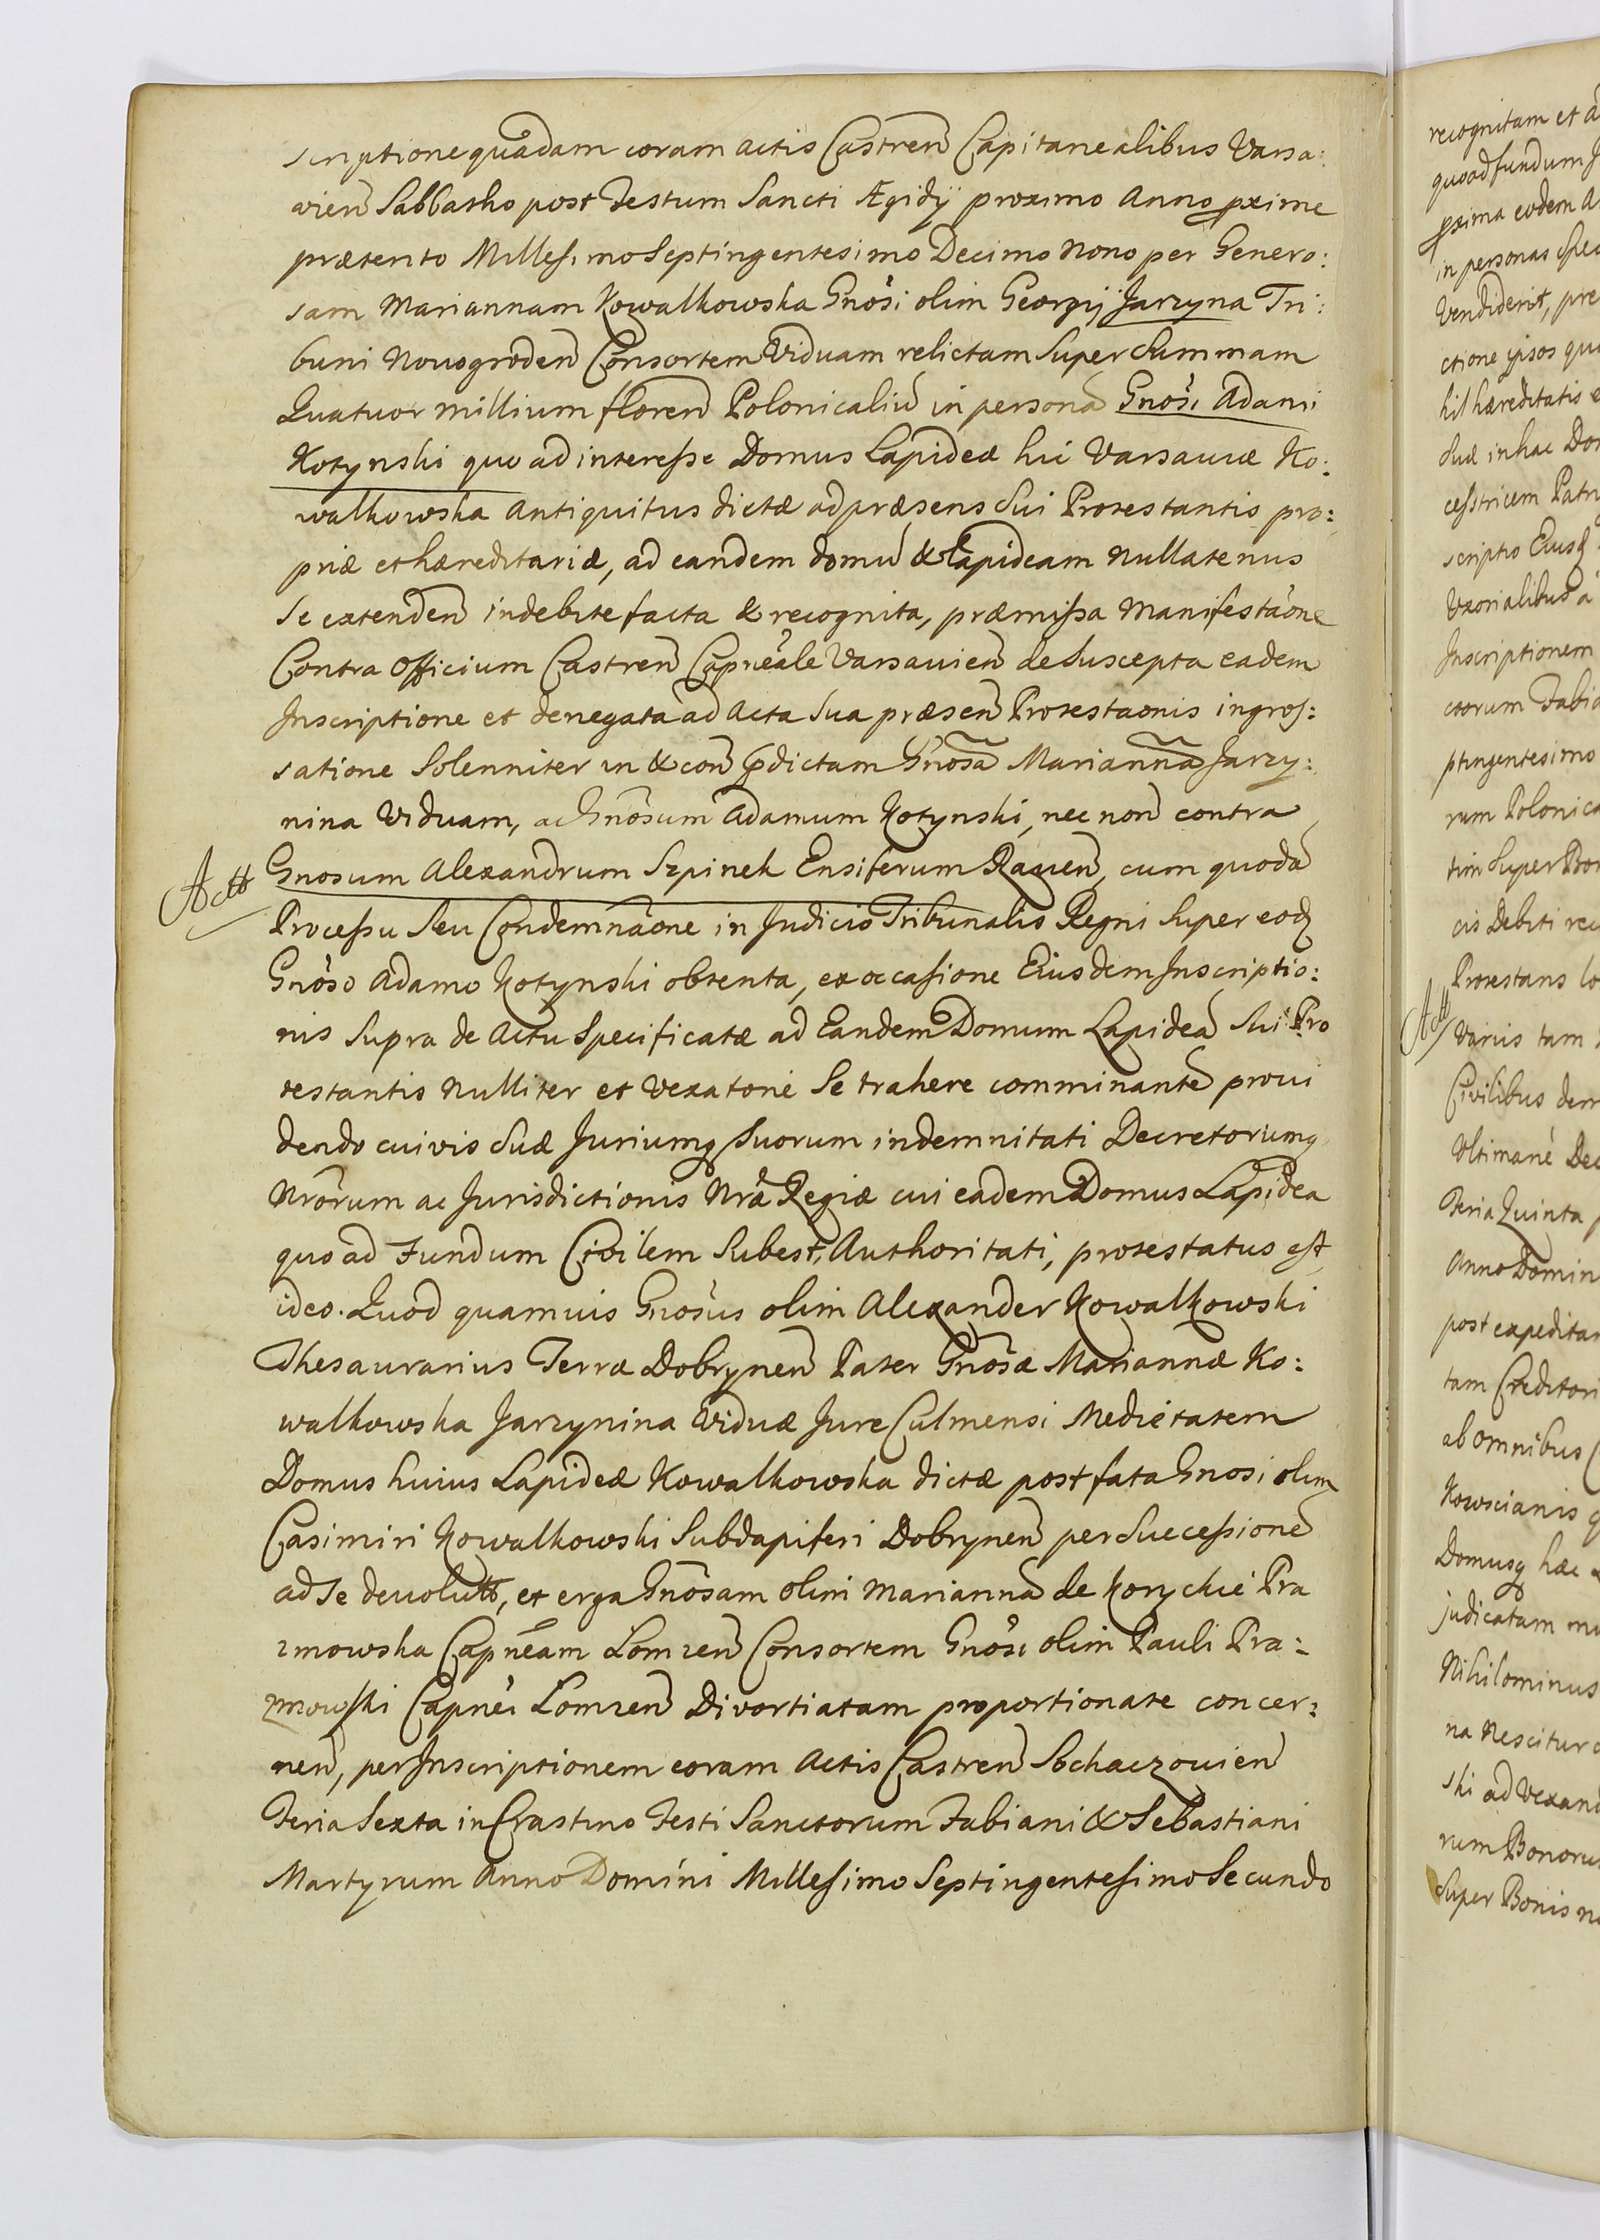 scriptione quadam coram actis Castren Capitanealibus Varsa:
vien Sabbatho post Festum Sancti Ægidÿ proximo Anno pxime
præterito Millesimo Septingentesimo Decimo Nono per Genero:
sam Mariannam Kowalkowska Gnosi olim Georgij Jarzyna Tri:
buni Novogroden Consortem Viduam relictam Super Summam
Quatuor millium floren Polonicaliu in persona Gnosi Adami
Kotynski quo ad interesse Domus Lapideæ hic Varsaviæ Ko:
walkowska Antiquitus dictæ ad præsens Sui Protestantis pro:
priæ et hæreditariæ, ad eandem domu & Lapideam Nullatenus
Se extenden indebite facta & recognita, præmissa Manifestaone
Contra Officium Castren Capneale Varsavien de Suscepta eadem
Inscriptione et denegata ad Acta Sua præsen Protestaonis ingros:
satione Solenniter in & con pdictam Gnosa Marianna Jarzy:
nina Viduam, ac Gnosum Adamum Kotynski, nec non contra
Actt
Gnosum Alexandrum Szpinek Ensiferum Raven, cum quoda
Processu Seu Condemnaone in Judicio Tribunalis Regni Super eod
Gnoso Adamo Kotynski obtenta, ex occasione Eiusdem Inscriptio:
nis Supra de Actu Specificatæ ad Eandem Domum Lapidea Sui Pro
testantis Nulliter et Vexatorie Se trahere comminante provi
dendo cuivis Suæ Juriumq Suorum indemnitati Decretorumq
Nrorum ac Jurisdictionis Nræ Regiæ cui eadem Domus Lapidea
quo ad Fundum Civilem Subest, Authoritati, protestatus est
ideo. Quod quamvis Gnosus olim Alexander Kowalkowski
Thesaurarius Terræ Dobrynen Pater Gnosæ Mariannæ Ko:
walkowska Jarzynina Viduæ Jure Culmensi Medietatem
Domus huius Lapideæ Kowalkowska dictæ post fata Gnosi olim
Casimiri Kowalkowski Subdapiferi Dobrynen per Successione
ad Se devolutt, et erga Gnosam olim Marianna de Korychie Pra
zmowska Capneam Lomzen Consortem Gnosi olim Pauli Pra:
zmowski Capnei Lomzen Divortiatam proportionate concer:
nen, per Inscriptionem coram Actis Castren Sochaczovien
Feria Sexta in Crastino Festi Sanctorum Fabiani & Sebastiani
Martyrum Anno Domini Millesimo Septingentesimo Secundo
recognitam et
quoad fundum
pxima eodem
in personas
Vendiderit, pre
ctione ipsos
hil hæreditatis
Suæ in hac
cesstricem
scriptio Eiusd
Uxorialibus
Inscriptionem
ctorum
ptingentesimo
rum
tim Super
cis Debiti
Protestans
Actt
Variis tam
Civilibus
Ultimane
Feria Quinta
Anno
post
tam
ab omnibus
Domusq hæc
judicatam
Nihilominus
na Nescitur
ski ad
rum
Super Bonis